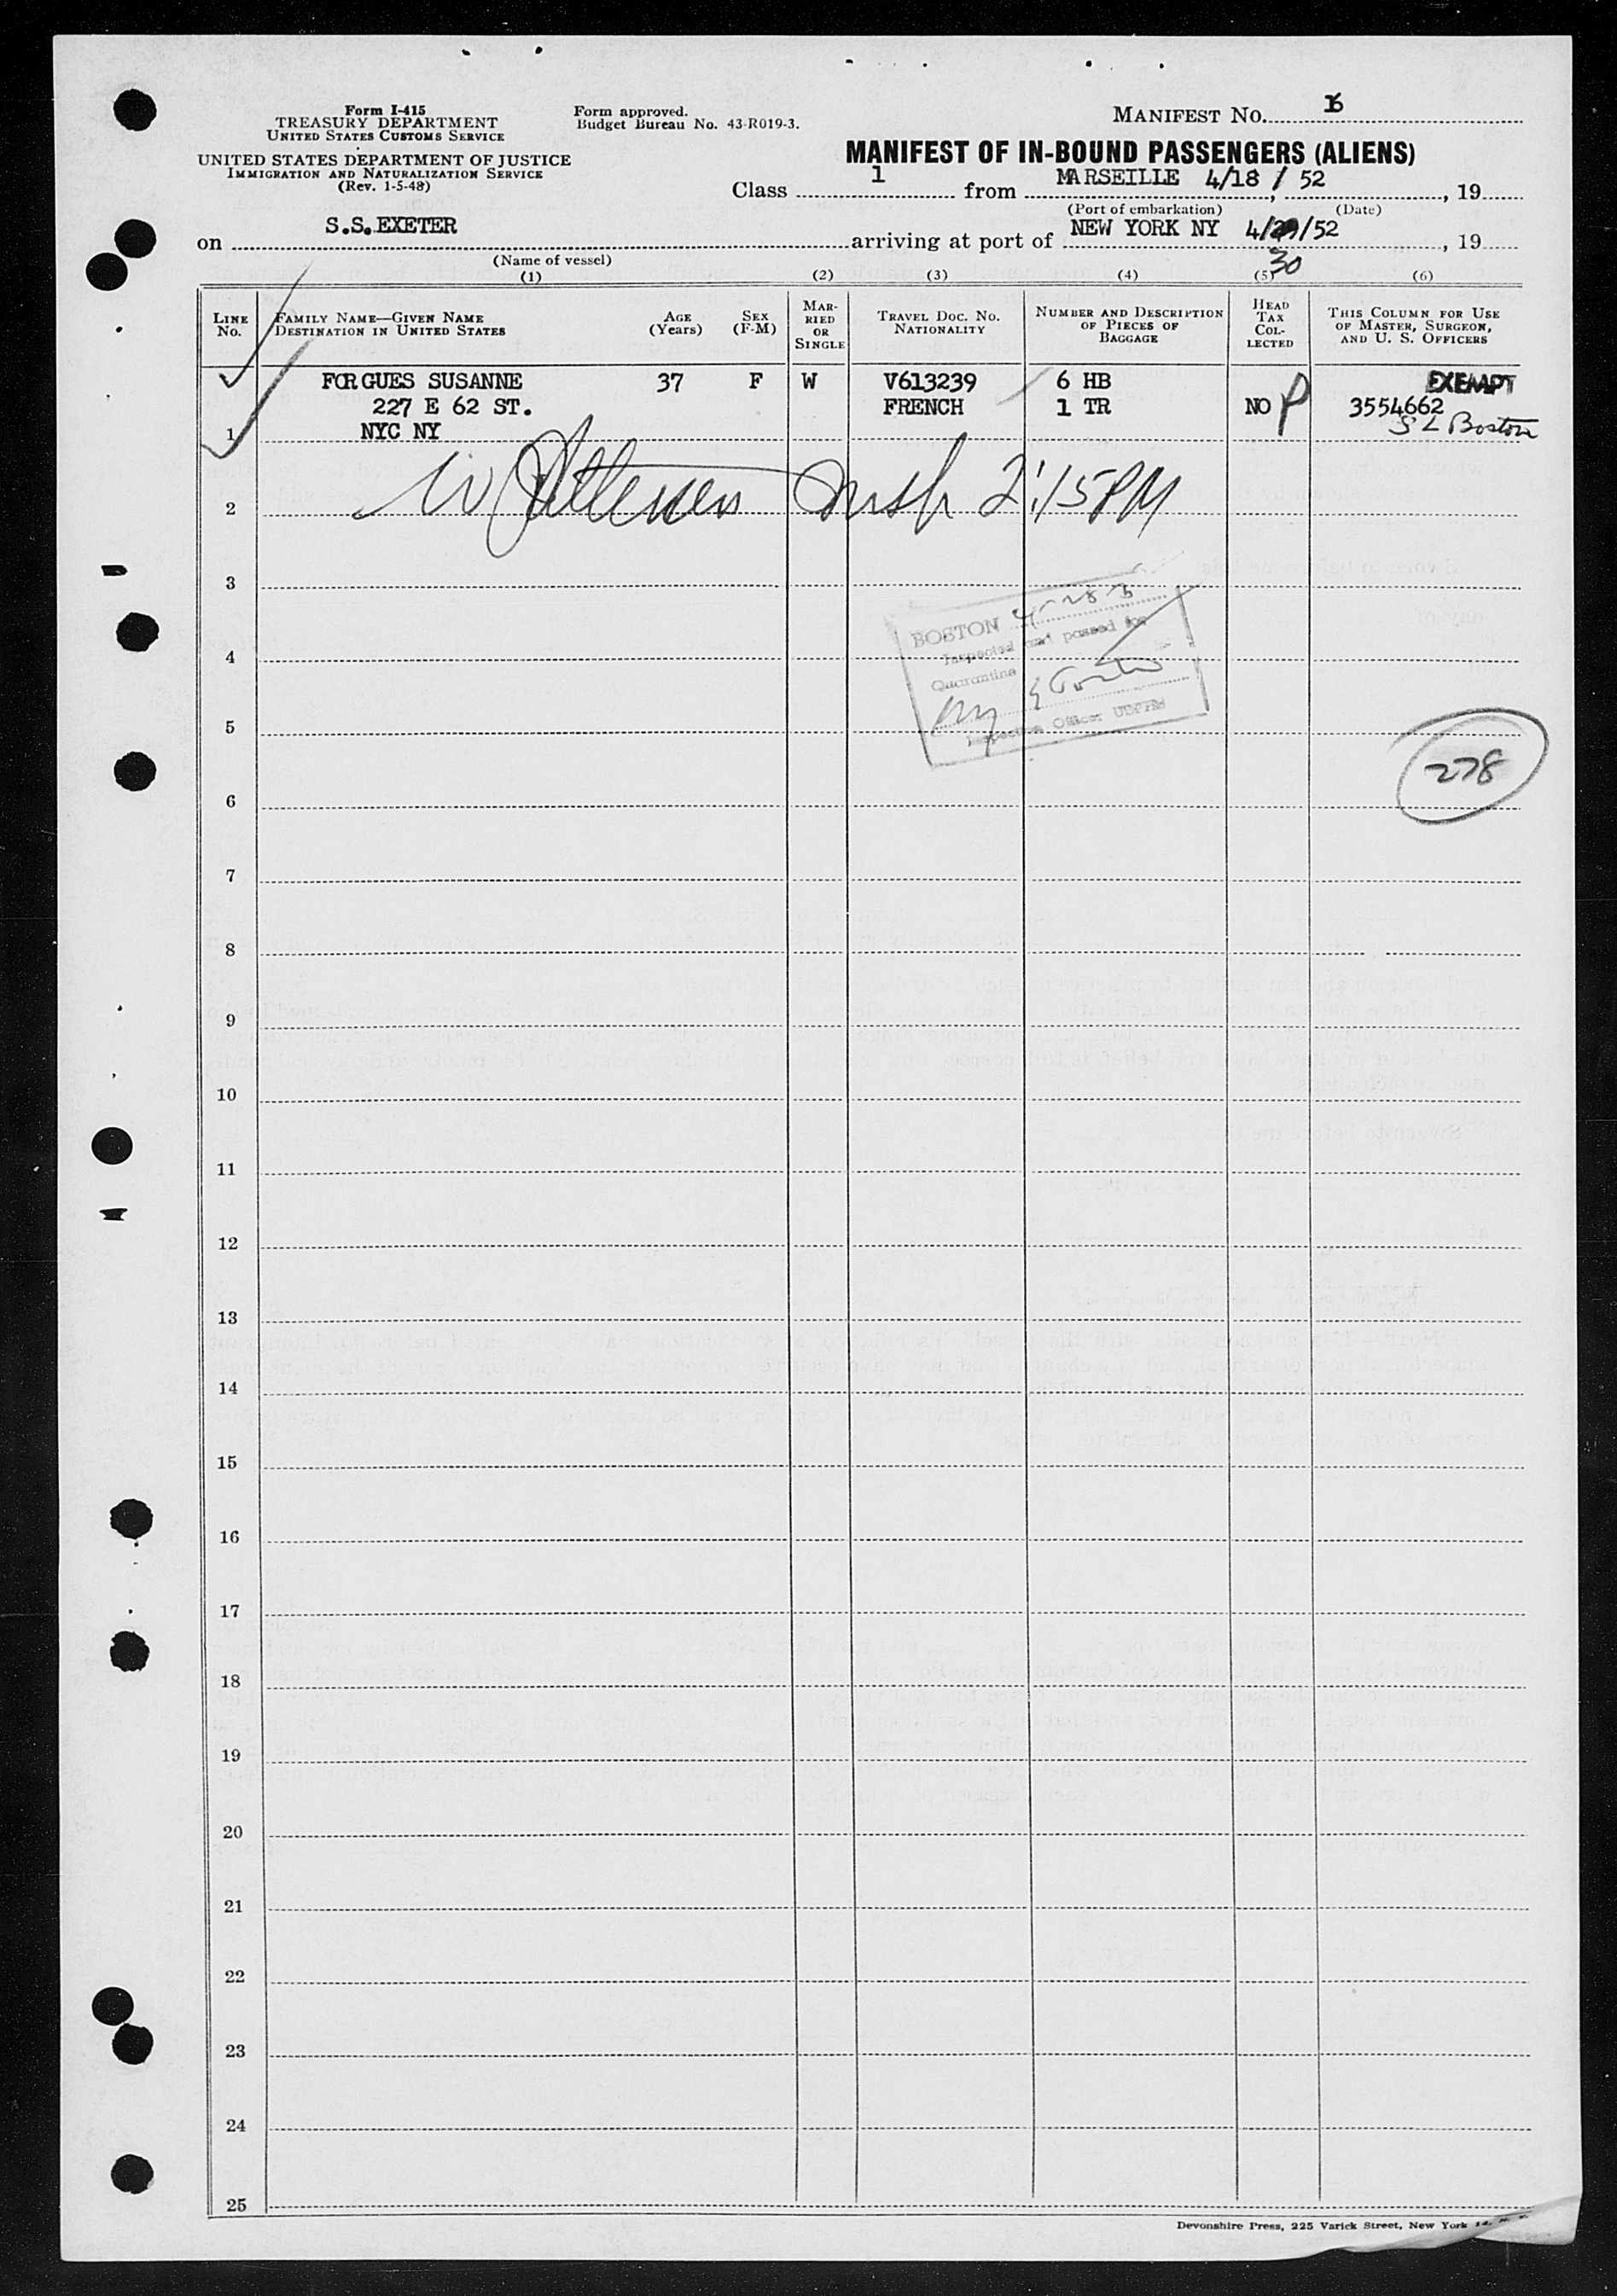 Form I-415
TREASURY DEPARTMENT
UNITED STATES CUSTOMS SERVICE
UNITED STATES DEPARTMENT OF JUSTICE
IMMIGRATION AND NATURALIZATION SERVICE
(Rev. 1-5-48)
Form approved.
Budget Bureau No. 43-R019-3.
MANIFEST No.
MANIFEST OF IN-BOUND PASSENGERS (ALIENS)
Class 1 from MARSEILLE 4/18/52, 19
(Port of embarkation) (Date)
on S.S.EXETER arriving at port of NEW YORK NY 4/29/52, 19
30
(Name of vessel)
(1) (2) (3) (4) (5) (6)
LINE No. FAMILY NAME—GIVEN NAME DESTINATION IN UNITED STATES AGE (Years) SEX (F-M) MARRIED OR SINGLE TRAVEL DOC. NO. NATIONALITY NUMBER AND DESCRIPTION OF PIECES OF BAGGAGE HEAD TAX COLLECTED THIS COLUMN FOR USE OF MASTER, SURGEON, AND U. S. OFFICERS
FORGUES SUSANNE 37 F W V613239 6 HB EXEMPT
227 E 62 ST. FRENCH 1 TR NO P 3554662
1 NYC NY Boston
2 2:15 PM
3
BOSTON
4 Inspected and passed for
Quarantine
5 Inspection Officer USPHS
278
6
7
8
9
10
11
12
13
14
15
16
17
18
19
20
21
22
23
24
25
Devonshire Press, 225 Varick Street, New York